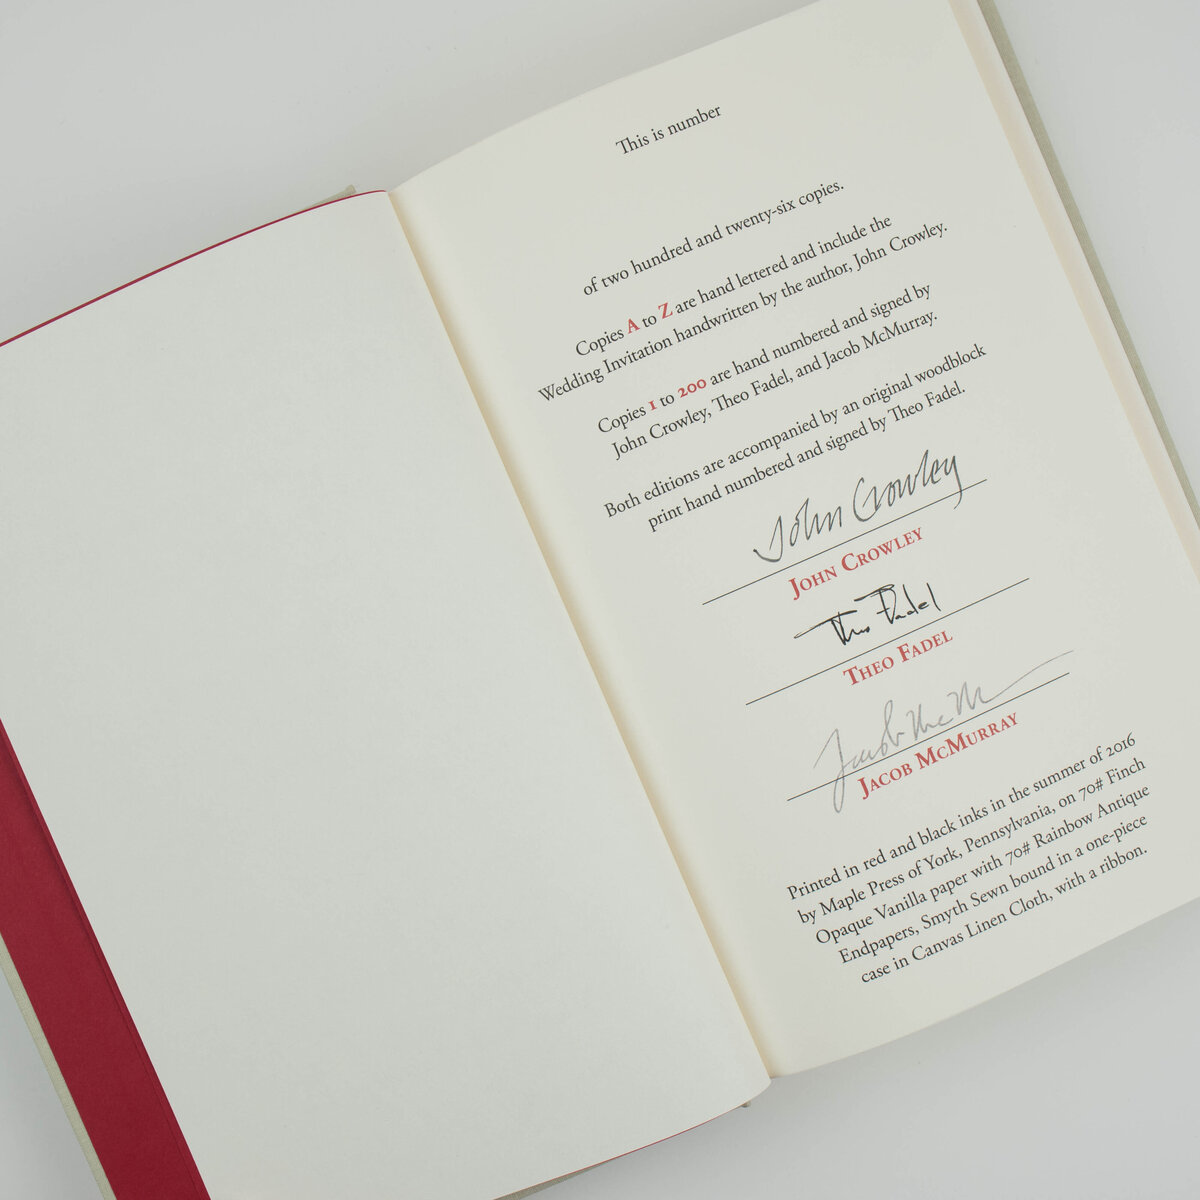 This is number
of two hundred and twenty-six copies.
Copies A to Z are hand lettered and include the
Wedding Invitation handwritten by the author, John Crowley.
Copies 1 to 200 are hand numbered and signed by
John Crowley, Theo Fadel, and Jacob McMurray.
Both editions are accompanied by an original woodblock
print hand numbered and signed by Theo Fadel.
John Crowley
JOHN CROWLEY
Theo Fadel
THEO FADEL
Jacob McM
JACOB MCMURRAY
Printed in red and black inks in the summer of 2016
by Maple Press of York, Pennsylvania, on 70# Finch
Opaque Vanilla paper with 70# Rainbow Antique
Endpapers, Smyth Sewn bound in a one-piece
case in Canvas Linen Cloth, with a ribbon.